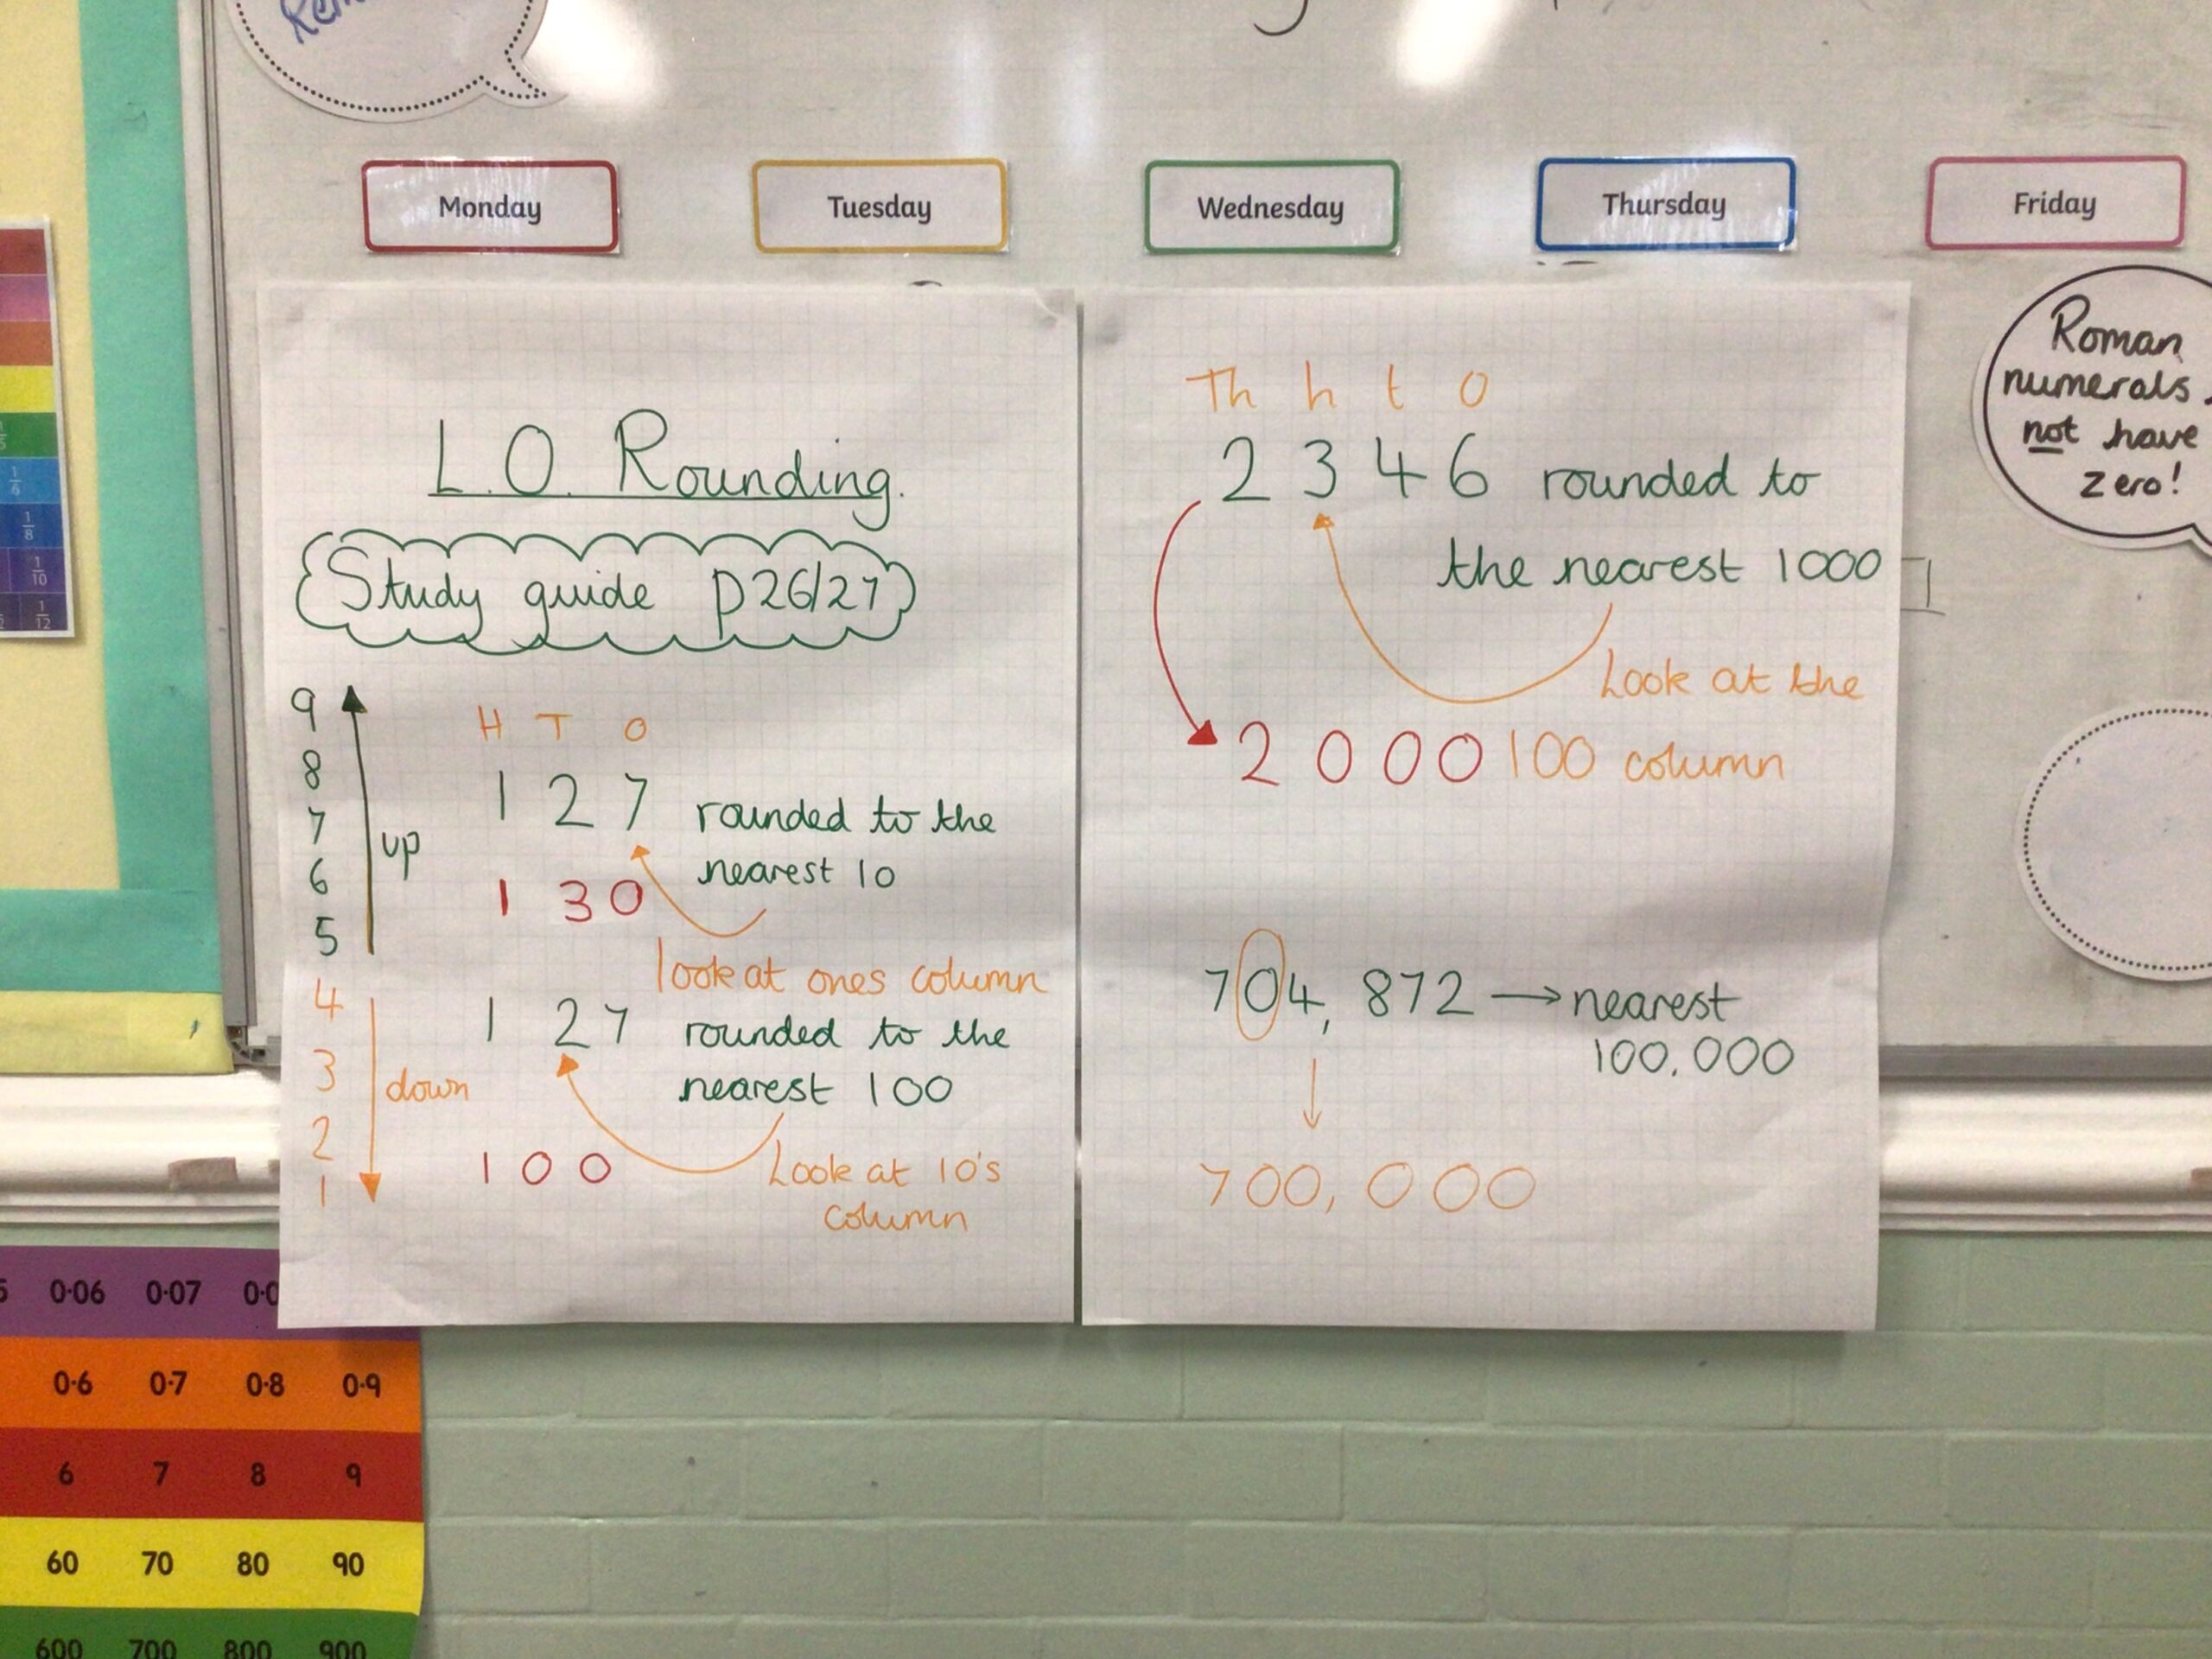 Monday
Tuesday
Wednesday
Thursday
Friday
L.O. Rounding.
Study guide p26/27
9
8
7
6
5
up
4
3
2
1
down
H T O
1 2 7 rounded to the
nearest 10
1 3 0
look at ones column
1 2 7 rounded to the
nearest 100
1 0 0
Look at 10's
column
Th h t O
2 3 4 6 rounded to
the nearest 1000
Look at the
2 0 0 0 100 column
704,872 → nearest
100,000
700,000
Roman
numerals
not have
zero!
1/6
1/8
1/10
1/12
0·06 0·07
0·6 0·7 0·8 0·9
6 7 8 9
60 70 80 90
600 700 800 900